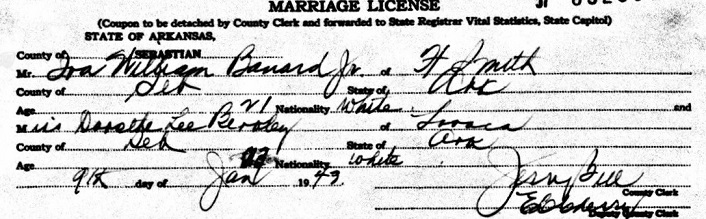 MARRIAGE LICENSE
(Coupon to be detached by County Clerk and forwarded to State Registrar Vital Statistics, State Capitol)
STATE OF ARKANSAS,
County of SEBASTIAN
Mr. Ira William Banard Jr. of Ft Smith
County of Seb State of Ark
Age 21 Nationality White and
Miss Lee of Lavaca
County of Seb State of Ark
Age Nationality White
9th day of Jan 1943
County Clerk
Deputy County Clerk